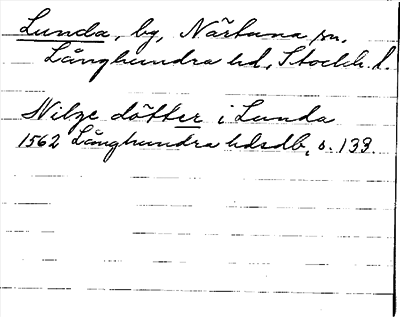 Lunda, by, Närtuna sn.
Långhundra hd, Stockh. l.
Nilze dötter i Lunda
1562 Långhundra hdsdb, s. 133.